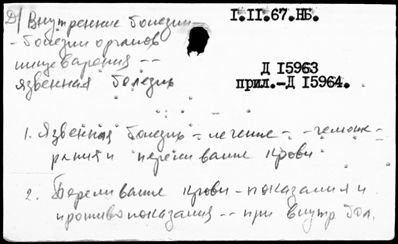 Д/ Внутренние болезни
I.II.67.НБ.
- болезни органов
пищеварения --
язвенная болезнь
Д I5963
прил.-Д I5964.
1. Язвенная болезнь - лечение -
и переливание крови
2. Переливание крови - показания и
противопоказания -- при внутр бол.